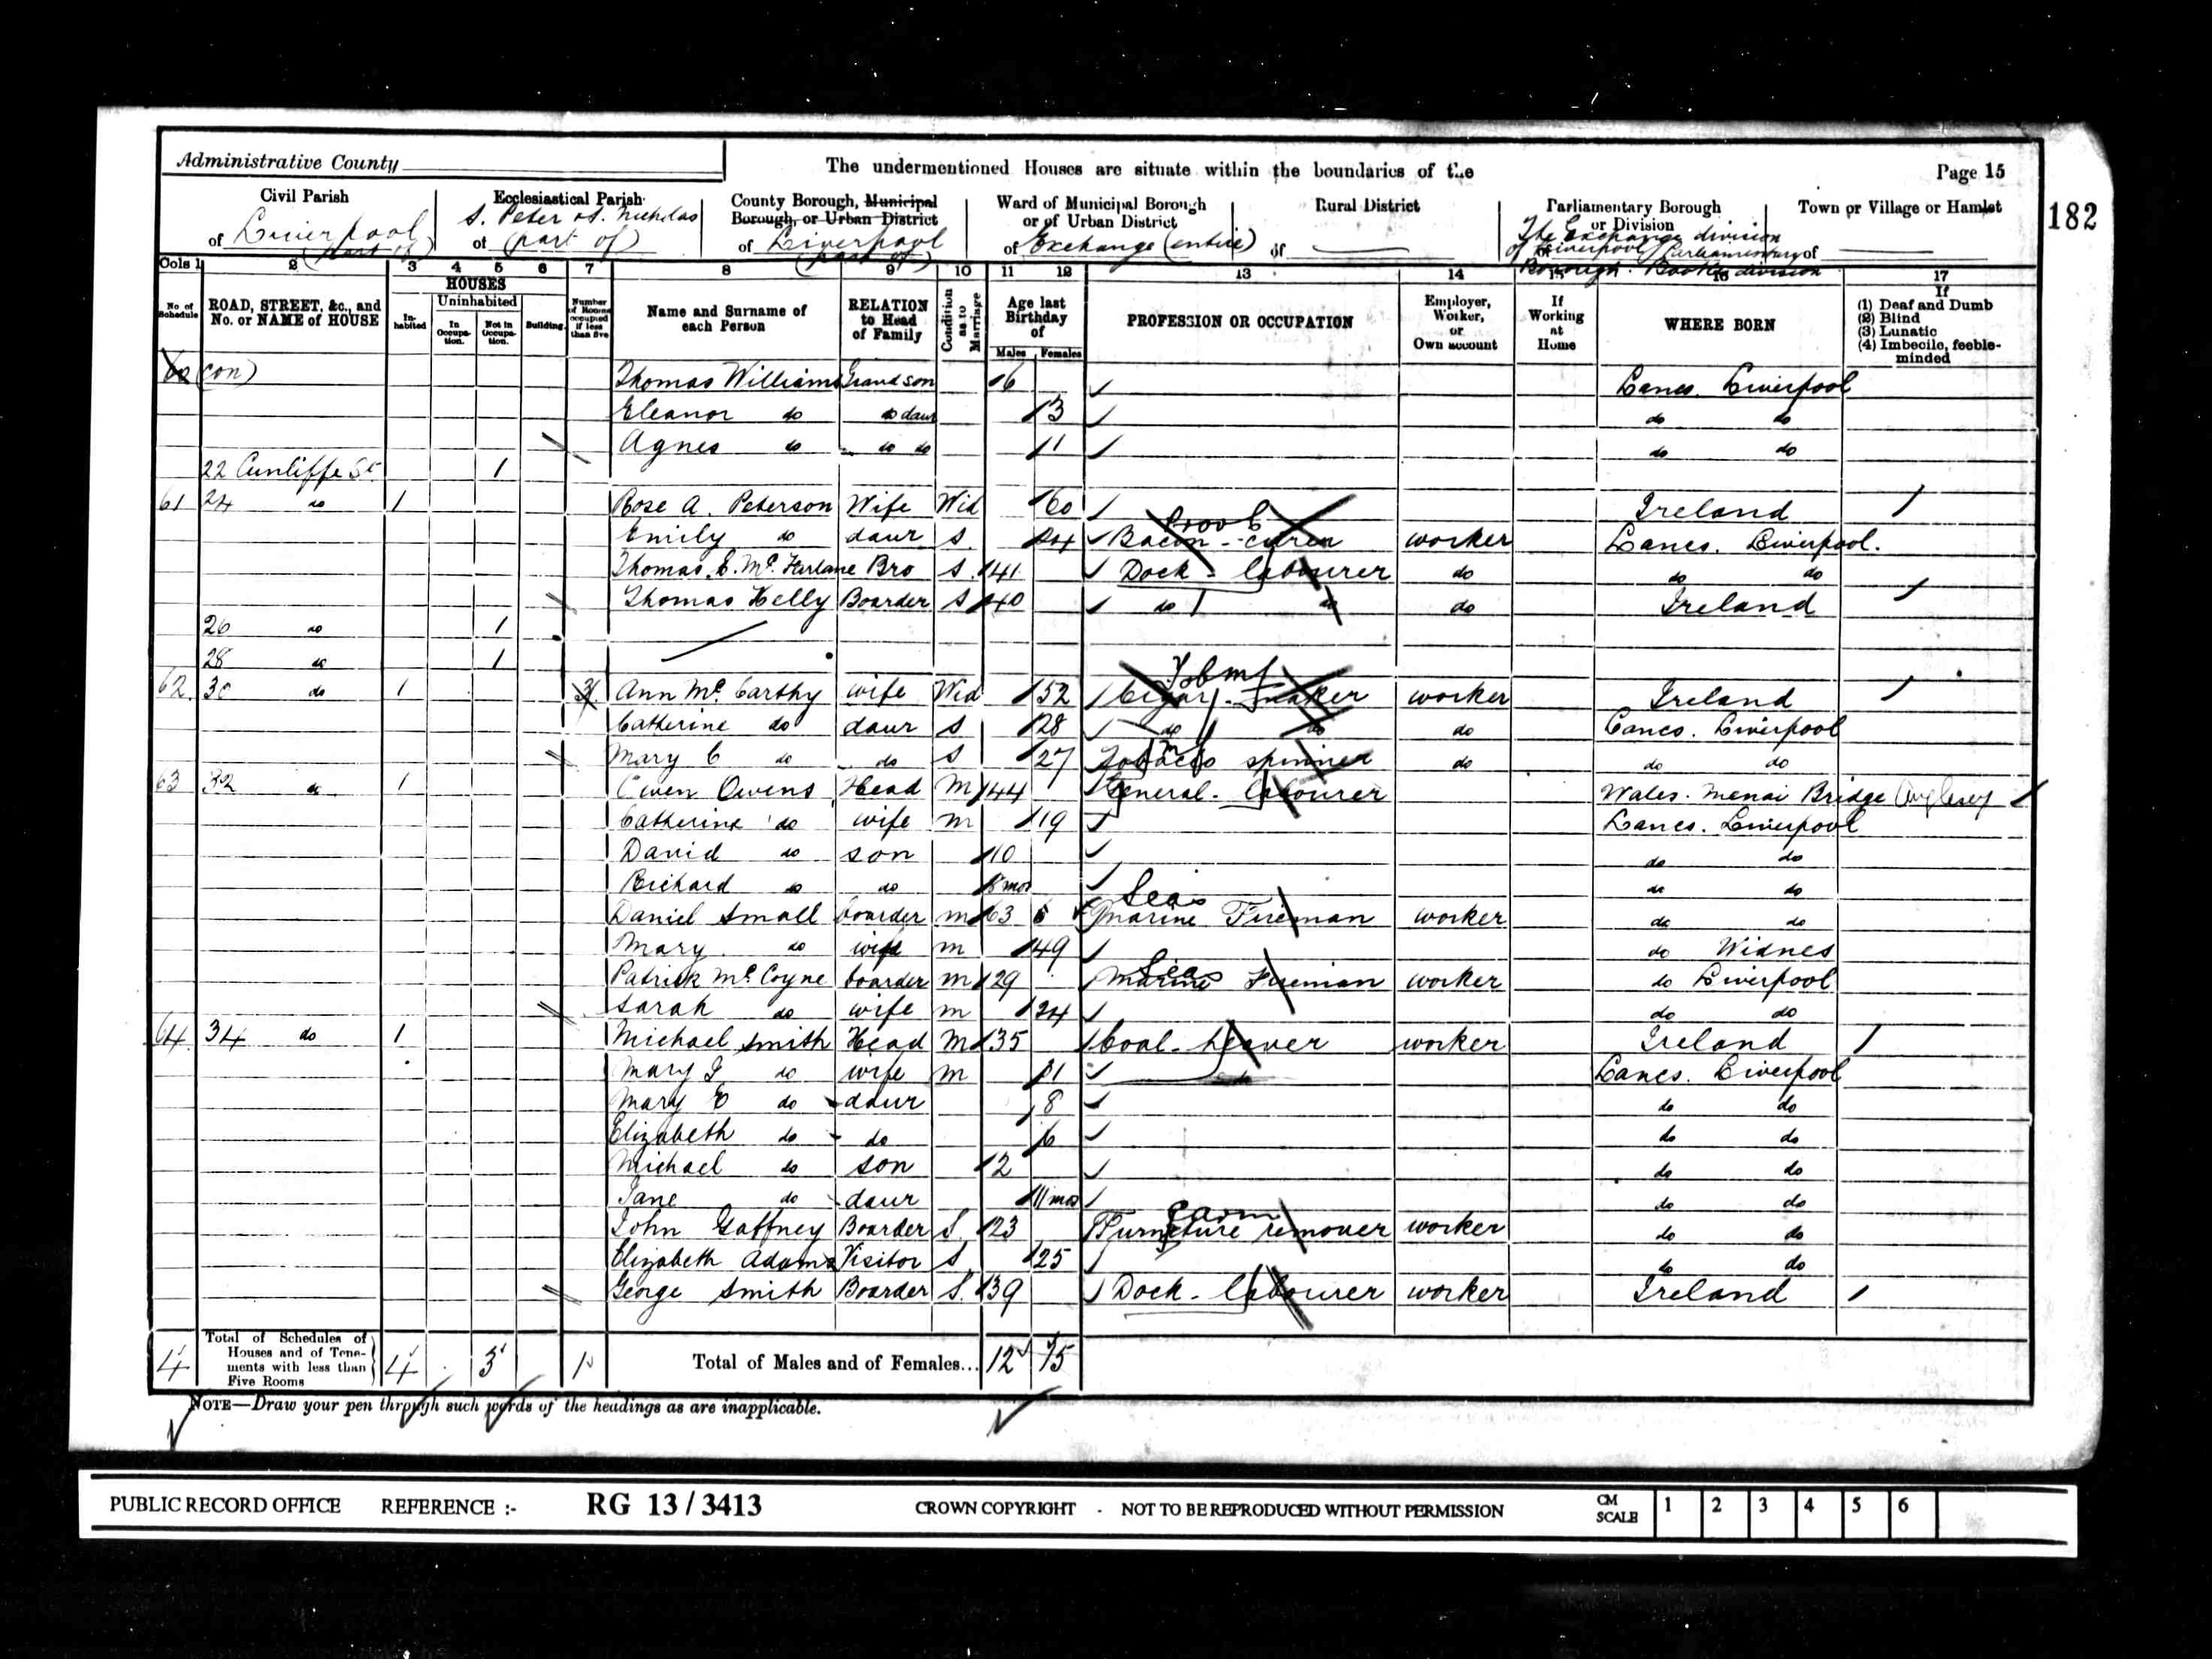 Administrative County
The undermentioned Houses are situate within the boundaries of the
Page 15
182
Civil Parish
of Liverpool (part of)
Ecclesiastical Parish
of S. Peter & S. Nicholas (part of)
County Borough, Municipal Borough, or Urban District
of Liverpool (part of)
Ward of Municipal Borough or of Urban District
of Exchange (entire)
Rural District
of
Parliamentary Borough or Division
of The Exchange division of Liverpool Parliamentary Borough
Town or Village or Hamlet
of
Cols 1 2 3 4 5 6 7 8 9 10 11 12 13 14 15 16 17
No. of Schedule
ROAD, STREET, &c., and No. or NAME of HOUSE
HOUSES
Inhabited
Uninhabited
In Occupation.
Not in Occupation.
Building.
Number of Rooms occupied if less than five
Name and Surname of each Person
RELATION to Head of Family
Condition as to Marriage
Age last Birthday of
Males Females
PROFESSION OR OCCUPATION
Employer, Worker, or Own account
If Working at Home
WHERE BORN
If
(1) Deaf and Dumb
(2) Blind
(3) Lunatic
(4) Imbecile, feeble-minded
60 (con) Thomas Williams Grandson 16 Lancs. Liverpool
Eleanor do do daur 13 do do
Agnes do do do 11 do do
22 Cunliffe St. 1
61 24 do 1 Rose A. Peterson Wife Wid 60 Ireland
Emily do daur S 24 Bacon-curer worker Lancs. Liverpool.
Thomas C. McFarlane Bro S 41 Dock-labourer do do do
Thomas Kelly Boarder S 40 do do do Ireland
26 do 1
28 do 1
62 30 do 1 3 Ann McCarthy wife Wid 52 Cigar-maker worker Ireland
Catherine do daur S 28 do do do Lancs. Liverpool
Mary C do do S 27 Tobacco spinner do do do
63 32 do 1 Owen Owens Head M 44 General-labourer Wales. Menai Bridge Anglesey
Catherine do wife m 19 Lancs. Liverpool
David do son 10 do do
Richard do do 8 mos do do
Daniel Small boarder m 63 Seas Marine Fireman worker do do
Mary do wife m 49 do Widnes
Patrick McCoyne boarder m 29 Seas Marine Fireman worker do Liverpool
Sarah do wife m 24 do do
64 34 do 1 Michael Smith Head M 35 Coal-heaver worker Ireland
Mary J do wife m 31 Lancs. Liverpool
Mary E do daur 8 do do
Elizabeth do do 6 do do
Michael do son 2 do do
Jane do daur 11 mos do do
John Gaffney Boarder S. 23 Furniture remover worker do do
Elizabeth Adams Visitor S 25 do do
George Smith Boarder S. 39 Dock-labourer worker Ireland
4 Total of Schedules of Houses and of Tenements with less than Five Rooms 4 3 1 Total of Males and of Females... 12 15
NOTE—Draw your pen through such words of the headings as are inapplicable.
PUBLIC RECORD OFFICE REFERENCE :- RG 13 / 3413 CROWN COPYRIGHT - NOT TO BE REPRODUCED WITHOUT PERMISSION CM SCALE 1 2 3 4 5 6